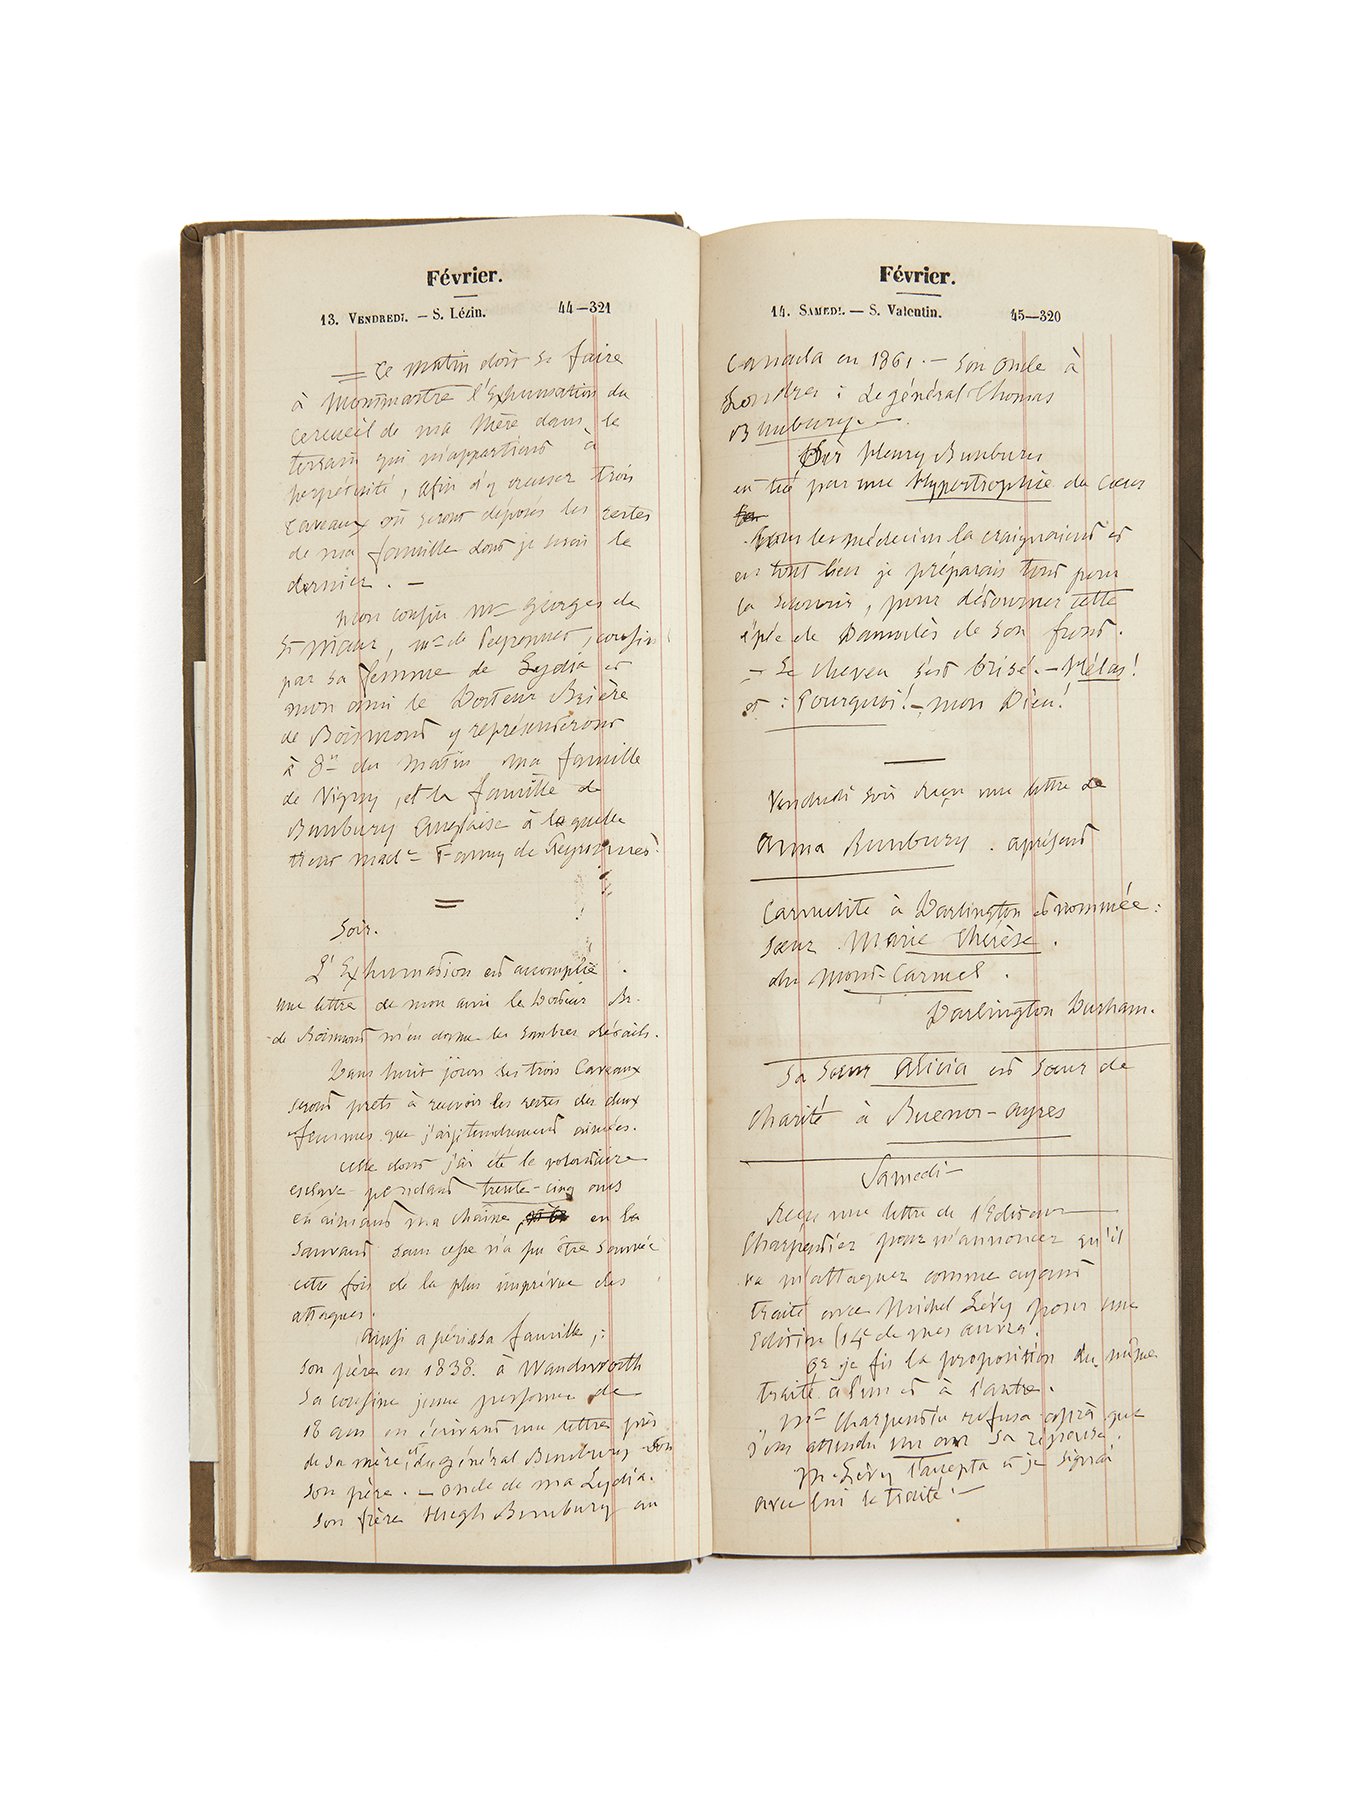 Février.
13. Vendredi. — S. Lézin. 44—321
= Ce matin doit se faire
à Montmartre l'Exhumation du
cercueil de ma Mère dans le
terrain qui m'appartient à
perpétuité, afin d'y creuser trois
caveaux où seront déposés les restes
de ma famille dont je serai le
dernier. —
Mon cousin Mr Georges de
St Maur, Mr de Peyronnet, cousin
par sa femme de Lydia et
mon ami le Docteur Brière
de Boismont y représenteront
à 8h du matin ma famille
de Vigny, et la famille de
Bunbury Anglaise à laquelle
tient made Fanny de Peyronnet.
=
Soir.
L'Exhumation est accomplie.
une lettre de mon ami le Docteur Br.
de Boismont m'en donne les sombres détails.
Dans huit jours les trois Caveaux
seront prêts à recevoir les restes des deux
femmes que j'ai tendrement aimées.
celle dont j'ai été le volontaire
esclave pendant trente-cinq ans
en aimant ma chaîne, en la
sauvant sans cesse n'a pu être sauvée
cette fois de la plus imprévue des
attaques.
Ainsi a péri sa famille;:
son père en 1838. à Wandsworth
sa cousine jeune personne de
18 ans en écrivant une lettre près
de sa mère, et du général Bunbury
son père. — oncle de ma Lydia.
son frère Hugh Bunbury au
Février.
14. Samedi. — S. Valentin. 45—320
Canada en 1861. — son oncle à
Londres : le général Thomas
Bunbury. —
Sir Henry Bunbury
est tué par une Hypertrophie du cœur
Tous les médecins la craignaient et
en tout lieu je préparais tout pour
la secourir, pour détourner cette
épée de Damoclès de son front.
— Le cheveu s'est brisé. — Hélas!
et : Pourquoi! — mon Dieu!
—
Vendredi soir reçu une lettre de
Anna Bunbury. à présent
Carmélite à Darlington et nommée :
sœur Marie Thérèse.
du Mont-Carmel.
Darlington Durham.
Sa Sœur Alicia est sœur de
charité à Buenos-ayres
Samedi —
Reçu une lettre de l'Editeur
Charpentier pour m'annoncer qu'il
va m'attaquer comme ayant
traité avec Michel Lévy pour une
Edition (14e de mes œuvres.
Or je fis la proposition du même
traité à l'un et à l'autre.
Mr Charpentier refusa après que
j'eus attendu un an sa réponse.
M. Lévy l'accepta et je signai
avec lui le traité. —